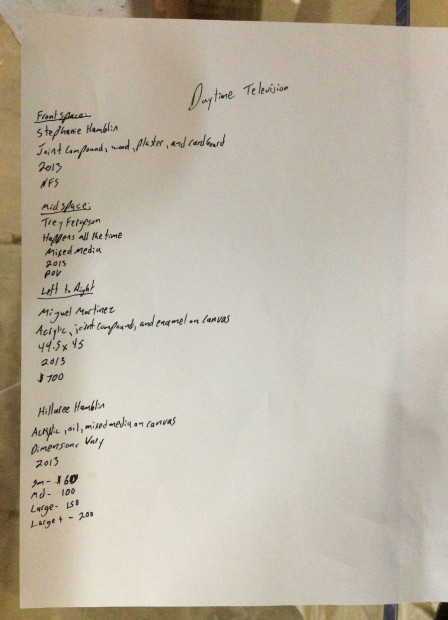 Daytime Television
Front space:
Stephanie Hamblin
Joint Compound, wood, plaster, and cardboard
2013
NFS
Mid space:
Trey Ferguson
Happens all the time
Mixed media
2013
POV
Left to Right
Miguel Martinez
Acrylic, joint compound, and enamel on canvas
44.5 x 45
2013
$700
Hillaree Hamblin
Acrylic, oil, mixed media on canvas
Dimensions Vary
2013
Sm - $60
Md - 100
Large - 150
Large + - 200